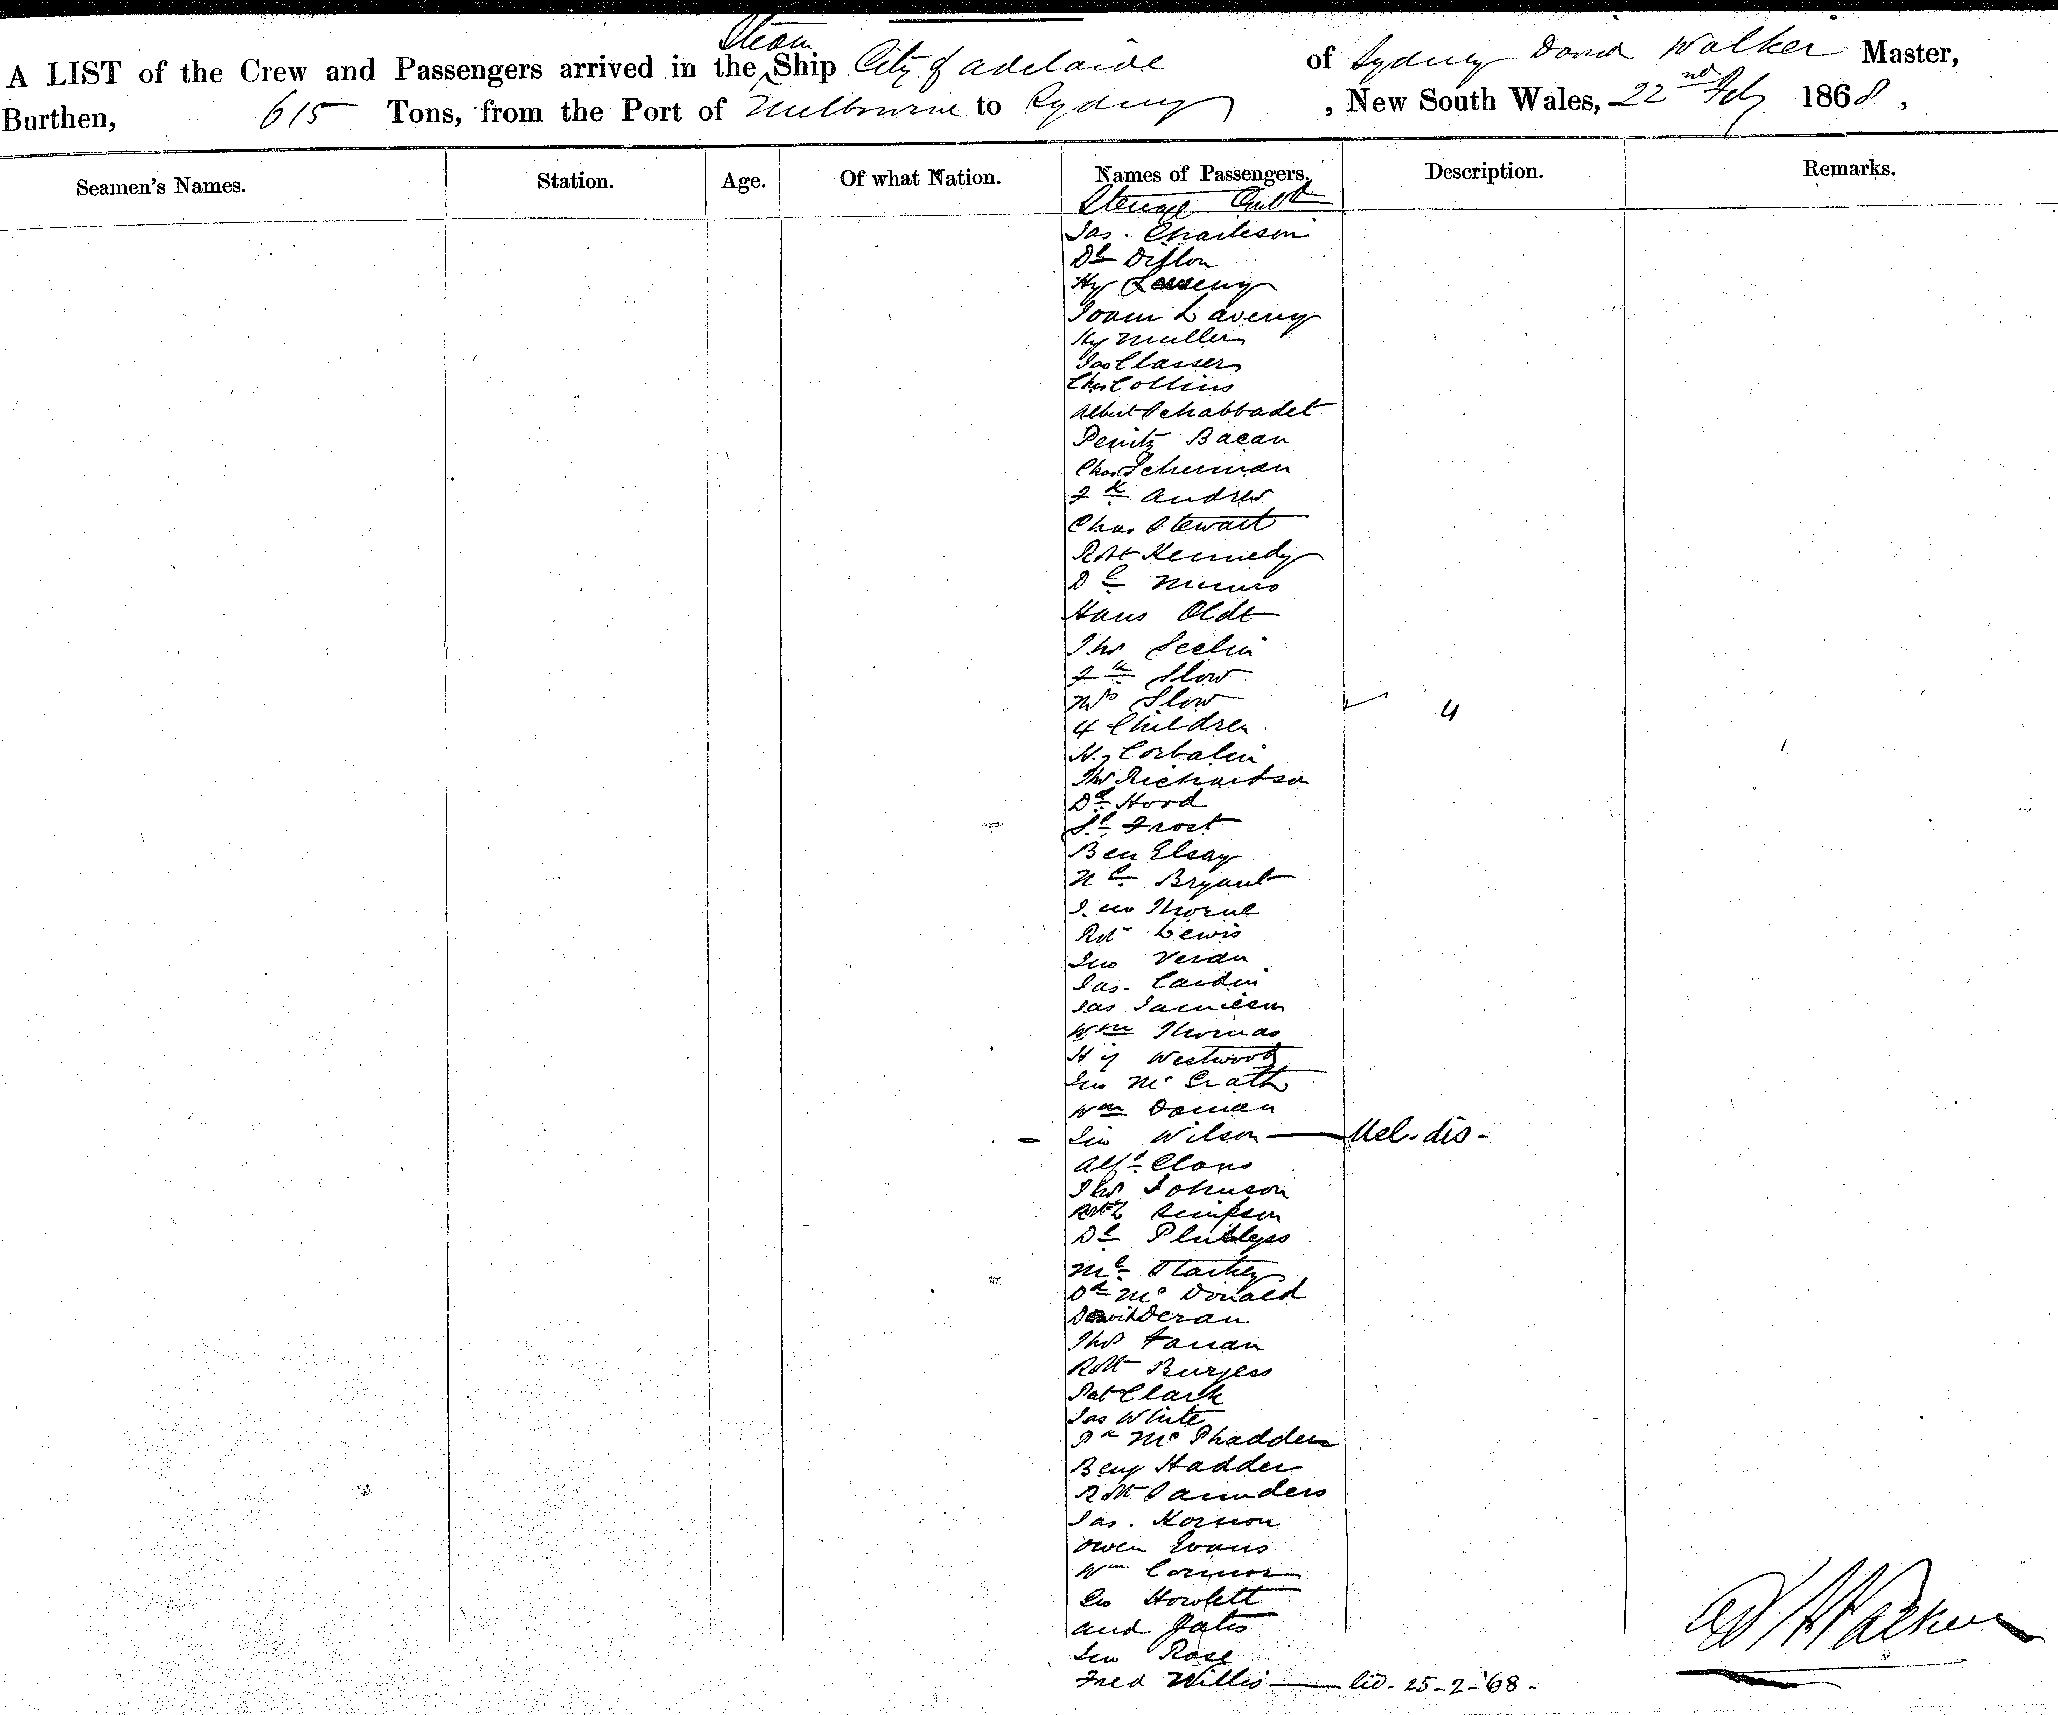 Steam
A LIST of the Crew and Passengers arrived in the Ship City of Adelaide of Sydney David Walker Master,
Burthen, 615 Tons, from the Port of Melbourne to Sydney, New South Wales, 22nd Feby 1868,
Seamen's Names. Station. Age. Of what Nation. Names of Passengers. Description. Remarks.
Steerage Contd
Jas. Charleson
Dl Dillon
Hy Laveny
Joain Laveny
Hy Muller
Jas Classer
Chas Collins
Albert Schabbadet
Peintz Bacan
Chas Scherman
Fk Andrew
Chas Stewart
Robt Kennedy
Dl Munro
Hans Oldt
Thos Seelin
Fk Slow
Mrs Slow
4 Children 4
Hy Corbalin
Thos Richardson
Dd Hood
Sl Frost
Ben Elsay
Nl Bryant
Jno Thorne
Robt Lewis
Jno Veran
Jas. Cardin
Jas Jamieson
Wm Thomas
Hy Westwood
Jno McGrath
Wm Doman
Jno Wilson — Mel. dis -
Alfd Clans
Thos Johnson
Robt Simpson
Dl Phillips
Ml Starkey
Dd McDonald
David Deran
Thos Fanan
Robt Burgess
Pat Clark
Jas White
Pk McPhadden
Benj Hadder
Robt Saunders
Jas. Kornon
Owen Evans
Wm Connor
Geo Howlett
And Yates
Jno Rose
Fred Willis — lid. 25-2-'68-